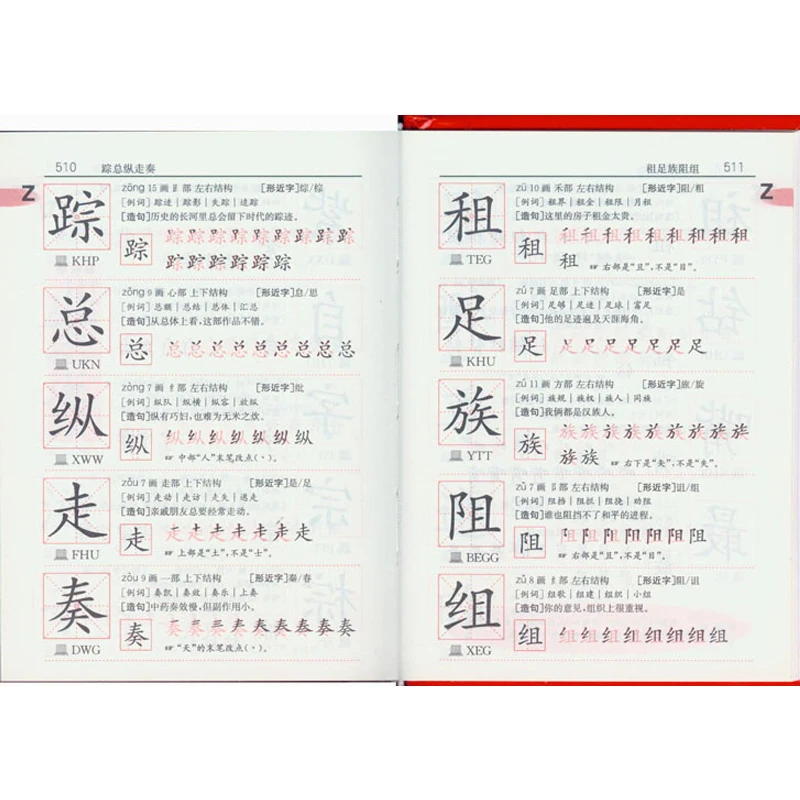 510 踪总纵走奏
Z
踪
KHP
zōng 15 画 𧾷部 左右结构 [形近字]综/棕
[例词]踪迹|踪影|失踪|追踪
[造句]历史的长河里总会留下时代的踪迹。
踪 踪踪踪踪踪踪踪踪踪
踪踪踪踪踪踪
总
UKN
zǒng 9 画 心部 上下结构 [形近字]息/思
[例词]总额|总结|总体|汇总
[造句]从总体上看,这部作品不错。
总 总总总总总总总总总
纵
XWW
zòng 7 画 纟部 左右结构 [形近字]纰
[例词]纵队|纵横|纵容|放纵
[造句]纵有巧妇,也难为无米之炊。
纵 纵纵纵纵纵纵纵
☞ 中部“人”末笔改点(丶)。
走
FHU
zǒu 7 画 走部 上下结构 [形近字]是/足
[例词]走动|走访|走失|逃走
[造句]亲戚朋友总要经常走动。
走 走走走走走走走
☞ 上部是“土”,不是“士”。
奏
DWG
zòu 9 画 一部 上下结构 [形近字]秦/春
[例词]奏凯|奏效|奏乐|上奏
[造句]中药奏效慢,但副作用小。
奏 奏奏奏奏奏奏奏奏奏
☞ “天”的末笔改点(丶)。
租足族阻组 511
Z
租
TEG
zū 10 画 禾部 左右结构 [形近字]阻/粗
[例词]租界|租金|租限|月租
[造句]这里的房子租金太贵。
租 租租租租租租租租租
租 ☞ 右部是“且”,不是“目”。
足
KHU
zú 7 画 足部 上下结构 [形近字]是
[例词]足够|足迹|足球|富足
[造句]他的足迹遍及天涯海角。
足 足足足足足足足
族
YTT
zú 11 画 方部 左右结构 [形近字]旅/旋
[例词]族规|族权|族人|同族
[造句]我俩都是汉族人。
族 族族族族族族族族族
族族 ☞ 右下是“矢”,不是“失”。
阻
BEGG
zǔ 7 画 阝部 左右结构 [形近字]诅/组
[例词]阻挡|阻抓|阻挠|劝阻
[造句]谁也阻挡不了和平的进程。
阻 阻阻阻阻阻阻阻
☞ 右部是“且”,不是“目”。
组
XEG
zǔ 8 画 纟部 左右结构 [形近字]阻/诅
[例词]组歌|组建|组织|小组
[造句]你的意见,组织上很重视。
组 组组组组组组组组